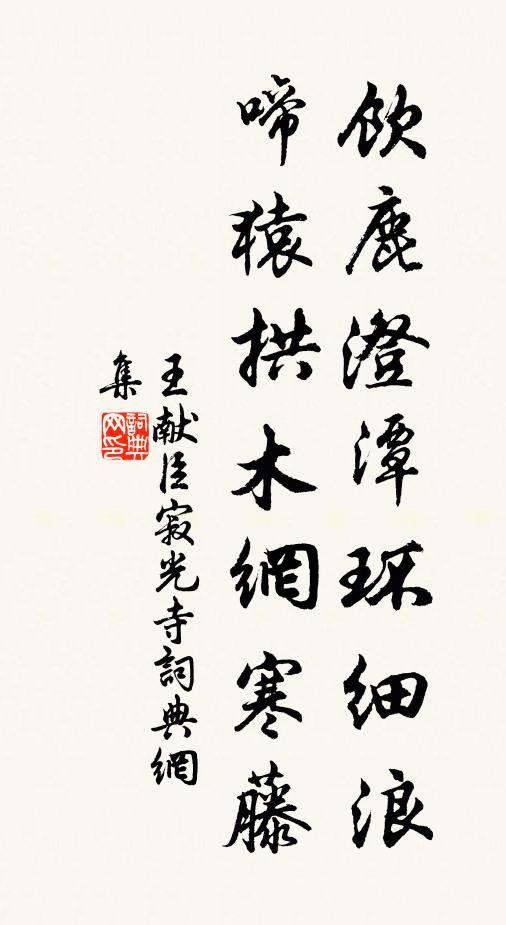 飲鹿澄潭环細浪
啼猿拱木網寒藤
王献臣寂光寺詞典網
集
詞典网印